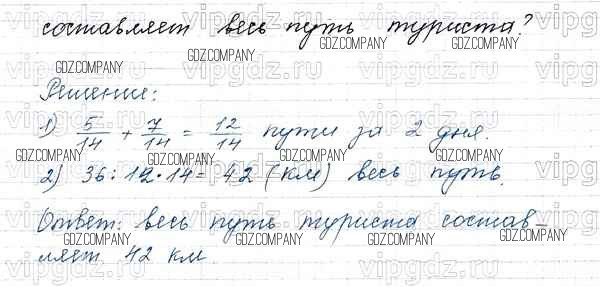 составляет весь путь туриста?
Решение:
1) 5/14 + 7/14 = 12/14 пути за 2 дня.
2) 36 : 12 · 14 = 42 (км) весь путь.
Ответ: весь путь туриста состав-
ляет 42 км.
GDZ.COMPANY
vipgdz.ru